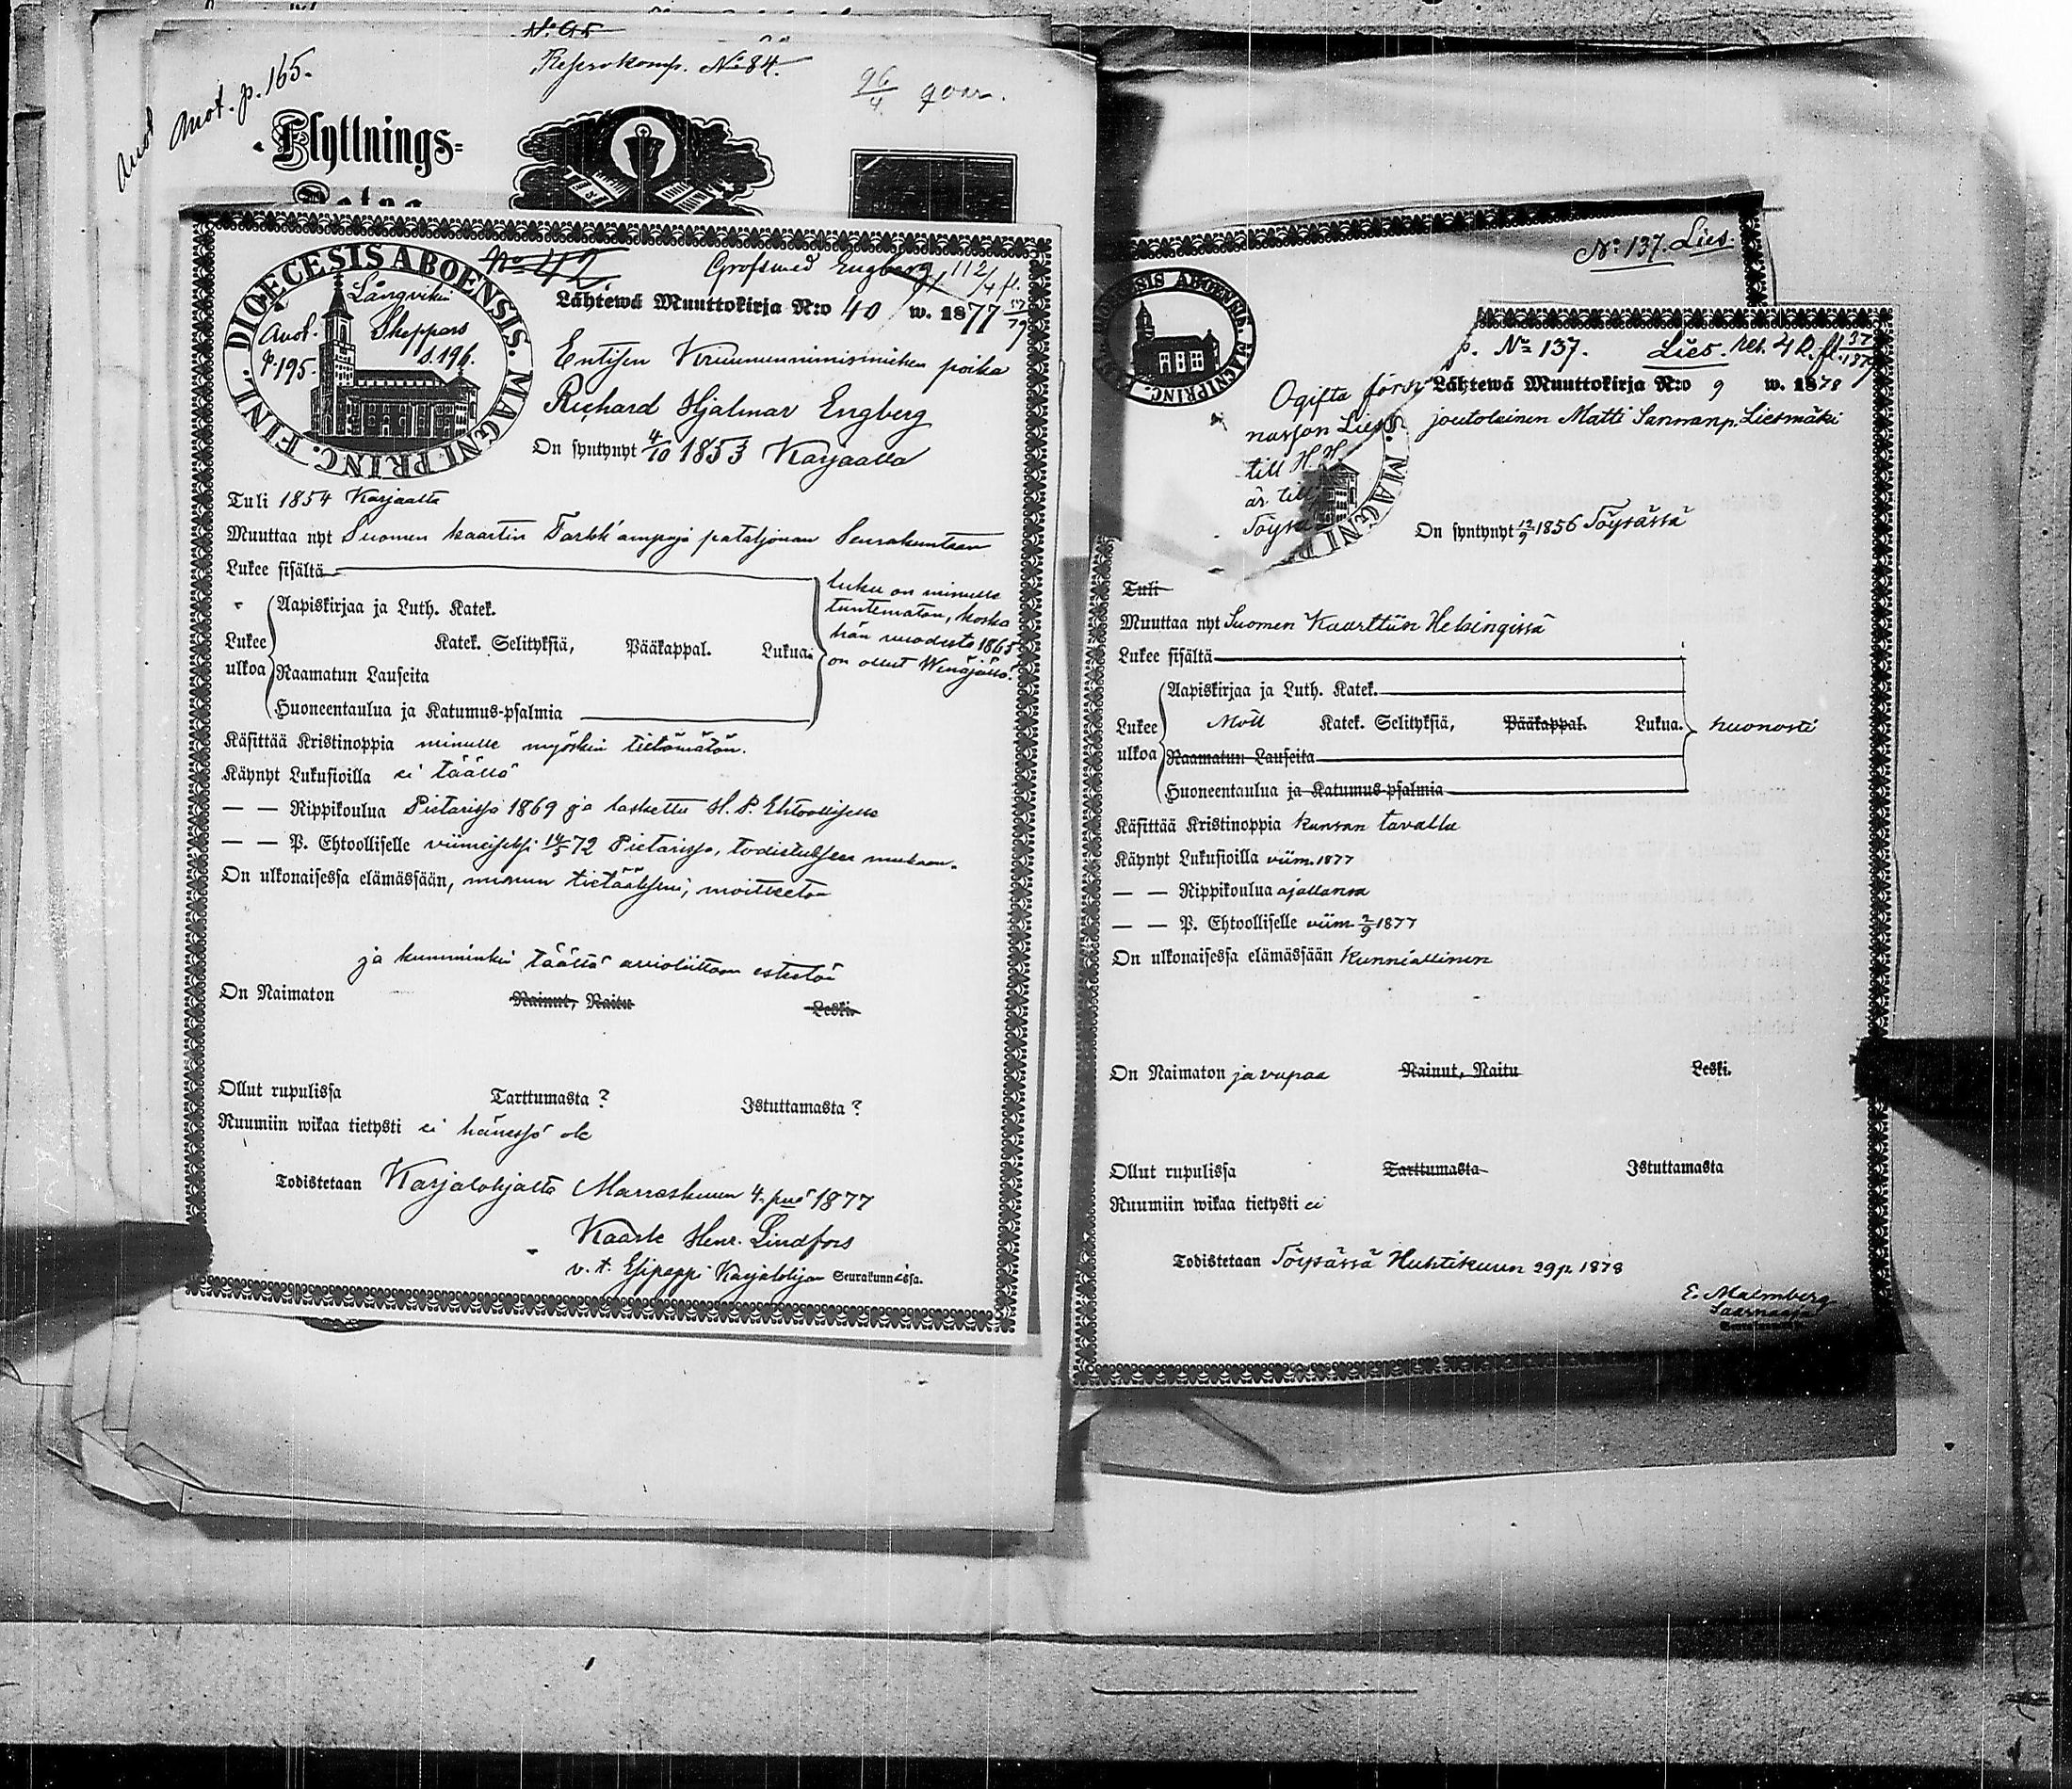 N:o 95
Reservkomp. No 84.
Anot. p. 165.
Anot
96/4 qvar.
Flyttnings=
DIOECESIS ABOENSIS. MAGNI PRINC. FINL.
Långvikin
Anot. Skeppars
p. 195. s. 196.
No 42
Grofsmed Engberg
Lähtewä Muuttokirja N:o 40 w. 1877
Entisen Kruununnimismiehen poika
Richard Hjalmar Engberg
On syntynyt 4/10 1853 Karjaalla
Tuli 1854 Karjaalta
Muuttaa nyt Suomen kaartin Tarkk'ampuja pataljonan Seurakuntaan
Lukee sisältä
Lukee ulkoa
Aapiskirjaa ja Luth. Katek.
Katek. Selityksiä, Pääkappal. Lukua.
Raamatun Lauseita
Huoneentaulua ja Katumus-psalmia
luku on minulle
tuntematon, koska
hän vuodesta 1865
on ollut Wenäjällä.
Käsittää Kristinoppia minulle myöskin tietämätön.
Käynyt Lukusioilla ei täällä
— — Rippikoulua Pietarissa 1869 ja laskettu H. P. Ehtoolliselle
— — P. Ehtoolliselle viimeiseksi 14/5 72 Pietarissa, todistuksen mukaan.
On ulkonaisessa elämässään, minun tietääkseni, moitteeton
ja kumminkin täällä avioliittoon esteetön
On Naimaton Nainut, Naitu Leski.
Ollut rupulissa Tarttumasta? Istuttamasta?
Ruumiin wikaa tietysti ei hänessä ole
Todistetaan Karjalohjalta Marraskuun 4. pnä 1877
Kaarle Henr. Lindfors
v. t. Esipappi Karjalohjan Seurakunnassa.
No: 137. Lies.
DIOECESIS ABOENSIS. MAGNI PRINC.
Ogifta
Lies
till H. H.
är till
Töysä
MAGNI P
p. No 137. Lies. res. 4 k. fl.
Lähtewä Muuttokirja N:o 9 w. 1878
joutolainen Matti Sannanp. Liesmäki
On syntynyt 12/9 1856 Töysässä
Tuli
Muuttaa nyt Suomen Kaarttiin Helsingissä
Lukee sisältä
Lukee ulkoa
Aapiskirjaa ja Luth. Katek.
Möll Katek. Selityksiä, Pääkappal. Lukua.
Raamatun Lauseita
Huoneentaulua ja Katumus-psalmia
huonosti
Käsittää Kristinoppia kansan tavalla
Käynyt Lukusioilla viim. 1877
— — Rippikoulua ajallansa
— — P. Ehtoolliselle viim. 2/9 1877
On ulkonaisessa elämässään Kunniallinen
On Naimaton ja vapaa Nainut, Naitu Leski.
Ollut rupulissa Tarttumasta Istuttamasta
Ruumiin wikaa tietysti ei
Todistetaan Töysässä Huhtikuun 29 p. 1878
E. Malmberg
Saarnaaja